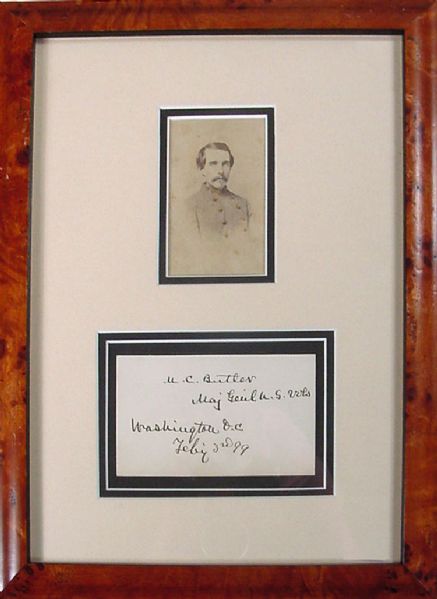 M. C. Butler
Maj Genl U. S. Vols
Washington D.C
Feby 3rd 99